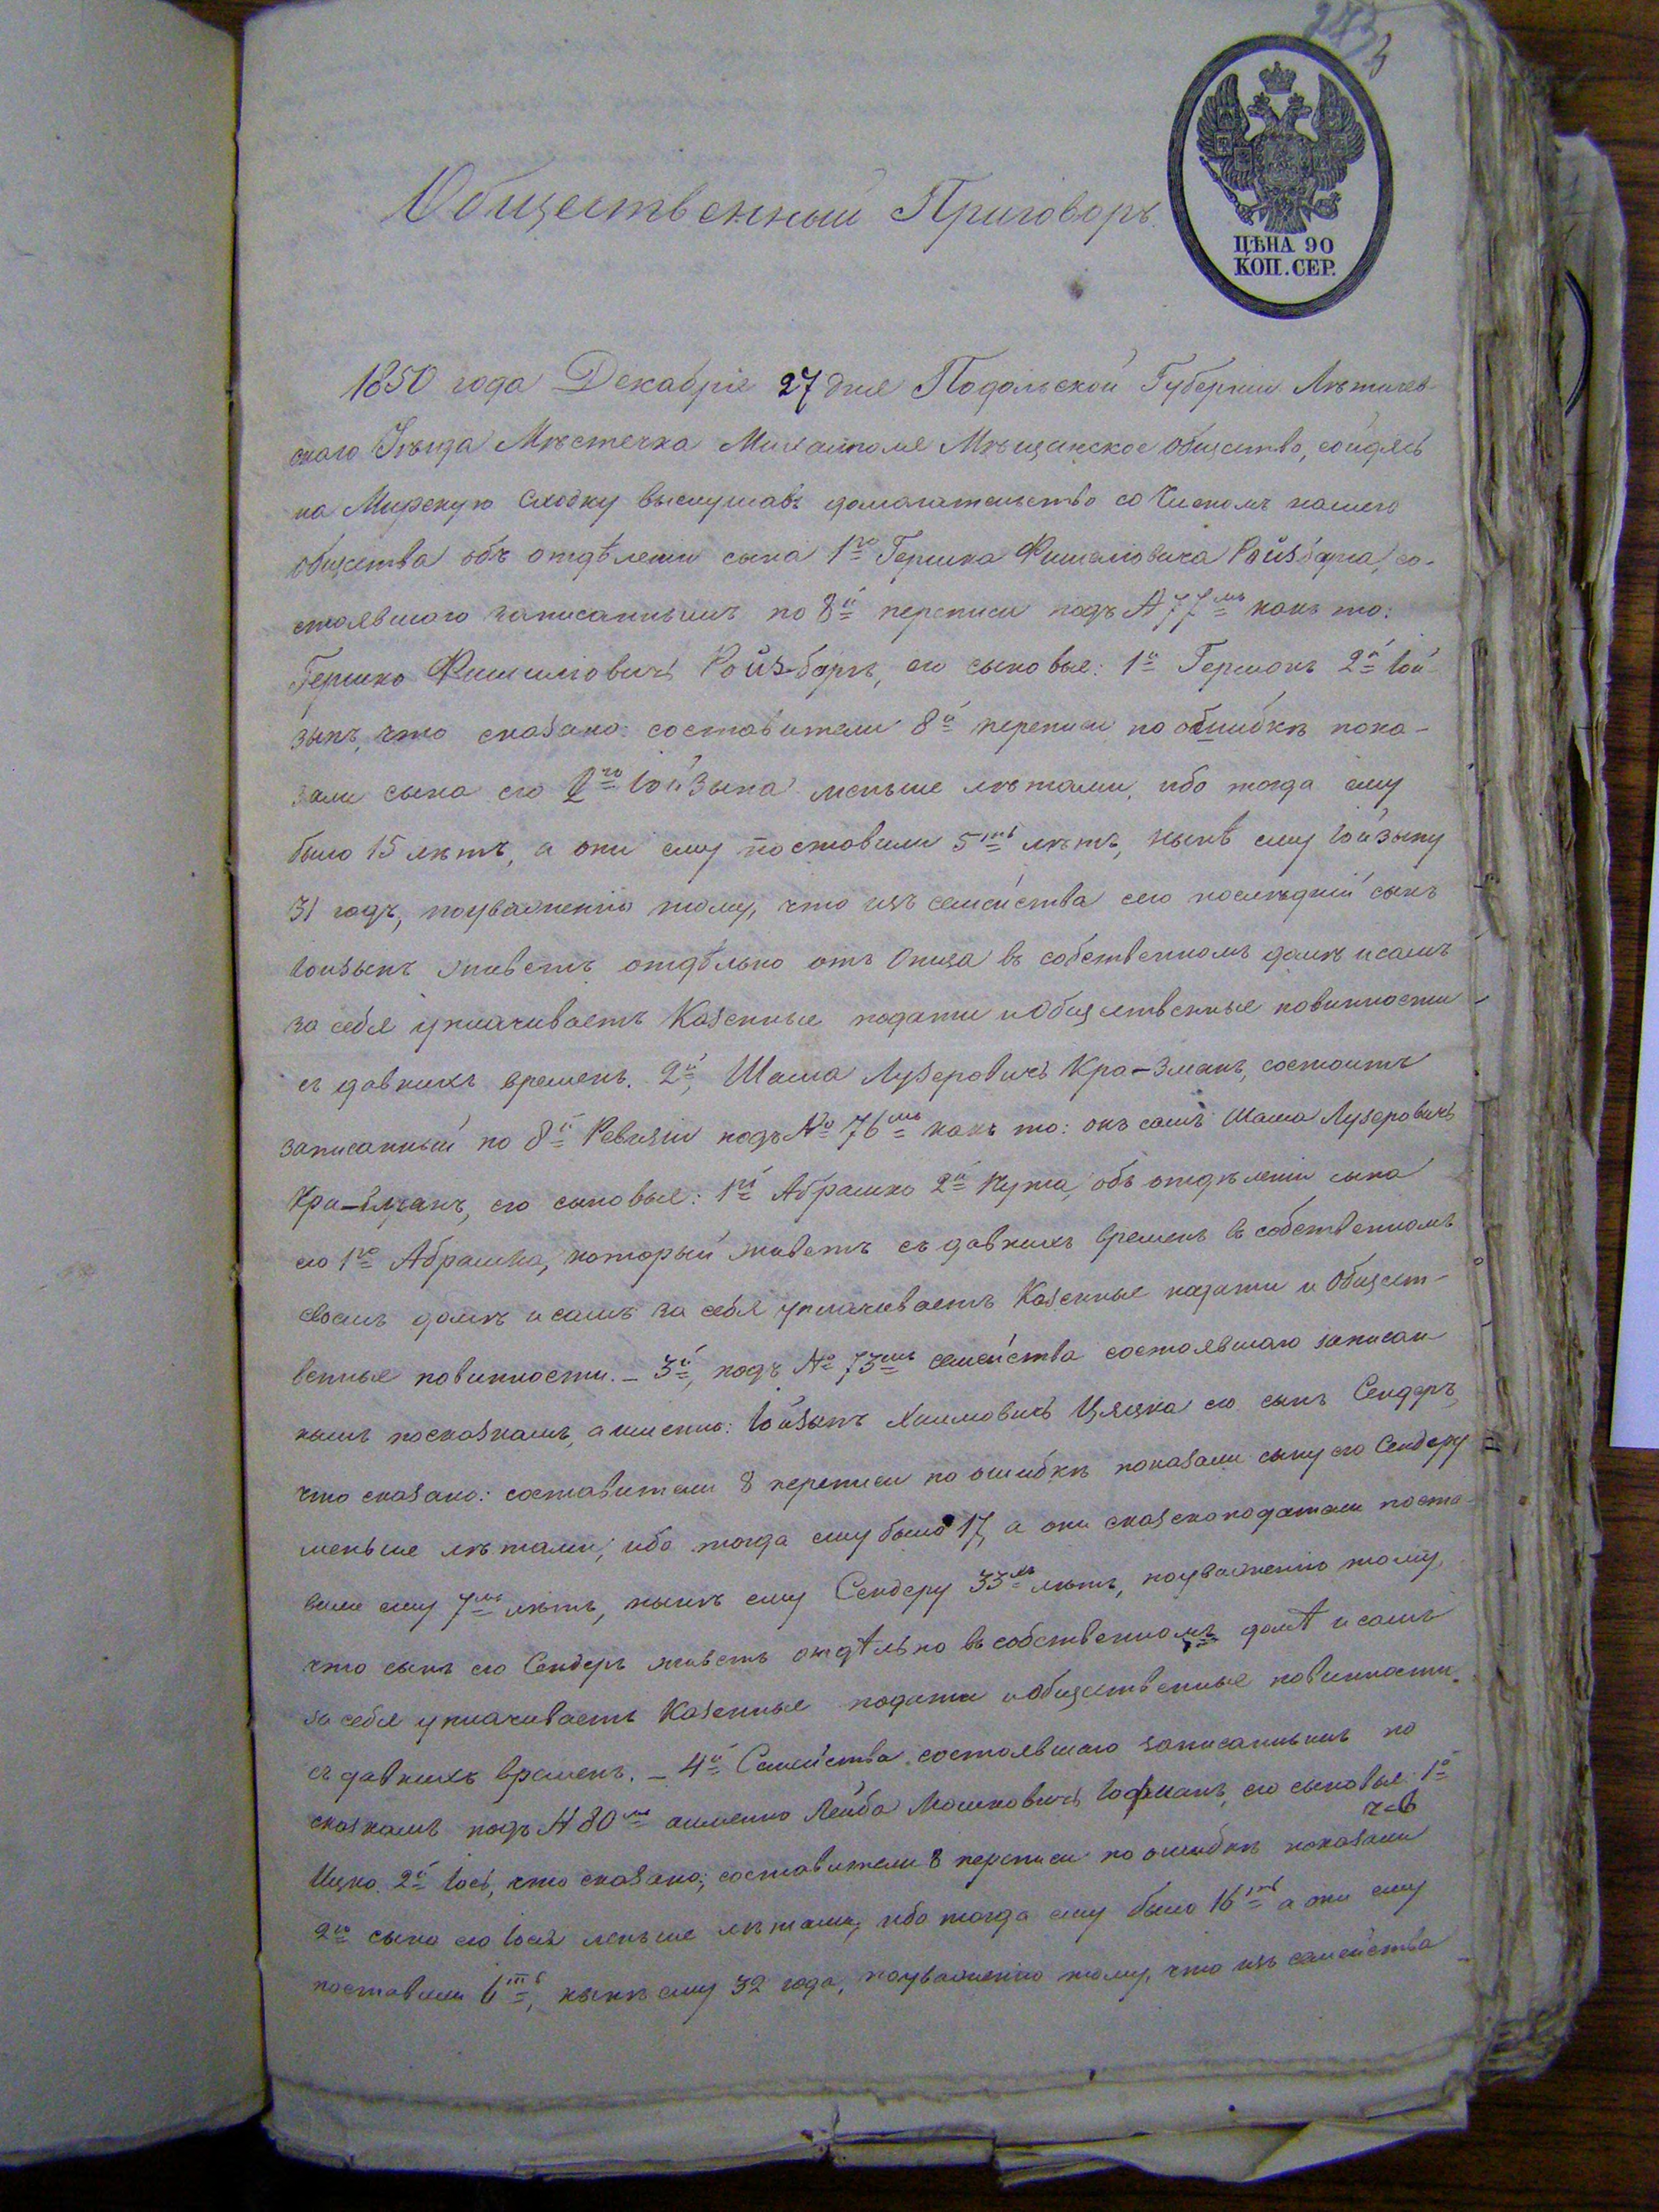 273
3
ЦѢНА 90
КОП. СЕР.
Общественный Приговоръ.
1850 года Декабря 27 дня Подольской Губерніи Лѣтичев-
скаго Уѣзда Мѣстечка Михалполя Мѣщанское общество, сойдясь
на Мирскую сходку выслушавъ домогательство со Числомъ нашего
общества объ отдѣленіи сына 1го Гершка Фишеліовича Ройзбарга, со-
стоявшаго записаннымъ по 8й переписи подъ № 77мъ какъ то:
Гершко Фишиліовичъ Ройз-баргъ, его сыновья: 1й Гершонъ 2й Іой-
зыпъ, что сказано: составители 8й переписи по обшибкѣ пока-
зали сына его 2го Іойзыпа меньше лѣтами, ибо тогда ему
было 15 лѣтъ, а они ему поставили 5ть лѣтъ, нынѣ ему Іойзыпу
31 годъ, поуваженію тому, что изъ семейства сего последній сынъ
Іойзыпъ живетъ отдѣльно отъ Отца въ собственномъ домѣ и самъ
за себя уплачиваетъ Казенные подати и Общественные повинности
съ давнихъ временъ. 2й, Шама Лузеровичъ Кра-зманъ, состоитъ
записанный по 8й Ревизіи подъ № 76мъ какъ то: онъ самъ Шама Лузеровичъ
Кра-зманъ, его сыновья: 1й Абрамко 2й Нута, объ отдѣленіи сына
его 1го Абрамка, который живетъ съ давнихъ временъ въ собственномъ
своемъ домѣ и самъ за себя уплачиваетъ Казенные подати и Общест-
венные повинности. – 3й, подъ № 73мъ семейства состоявшаго записан
нымъ посказкамъ, а именно: Іойзыпъ Хаимовичъ Цяцка его сынъ Сендеръ,
что сказано: составители 8 переписи по ошибкѣ показали сыну его Сендеру
меньше лѣтами, ибо тогда ему было 17, а они сказскоподатели поста-
вили ему 7мь лѣтъ, нынѣ ему Сендеру 33 лѣтъ, поуваженію тому,
что сынъ его Сендеръ живетъ отдѣльно въ собственномъ домѣ и самъ
за себя уплачиваетъ Казенные подати и Общественные повинности
съ давнихъ временъ. – 4й Семейства состоявшаго записаннымъ по
сказкамъ подъ № 80мъ аименно Лейба Мошковичъ Гофманъ, его сыновья: 1й
Ицко 2й Іось, что сказано; составители 8 переписи по ошибкѣ показали
2го сына его Іося меньше лѣтами, ибо тогда ему было 16ть а они ему
поставили 6ть, нынѣ ему 32 года, поуваженію тому, что изъ семейства